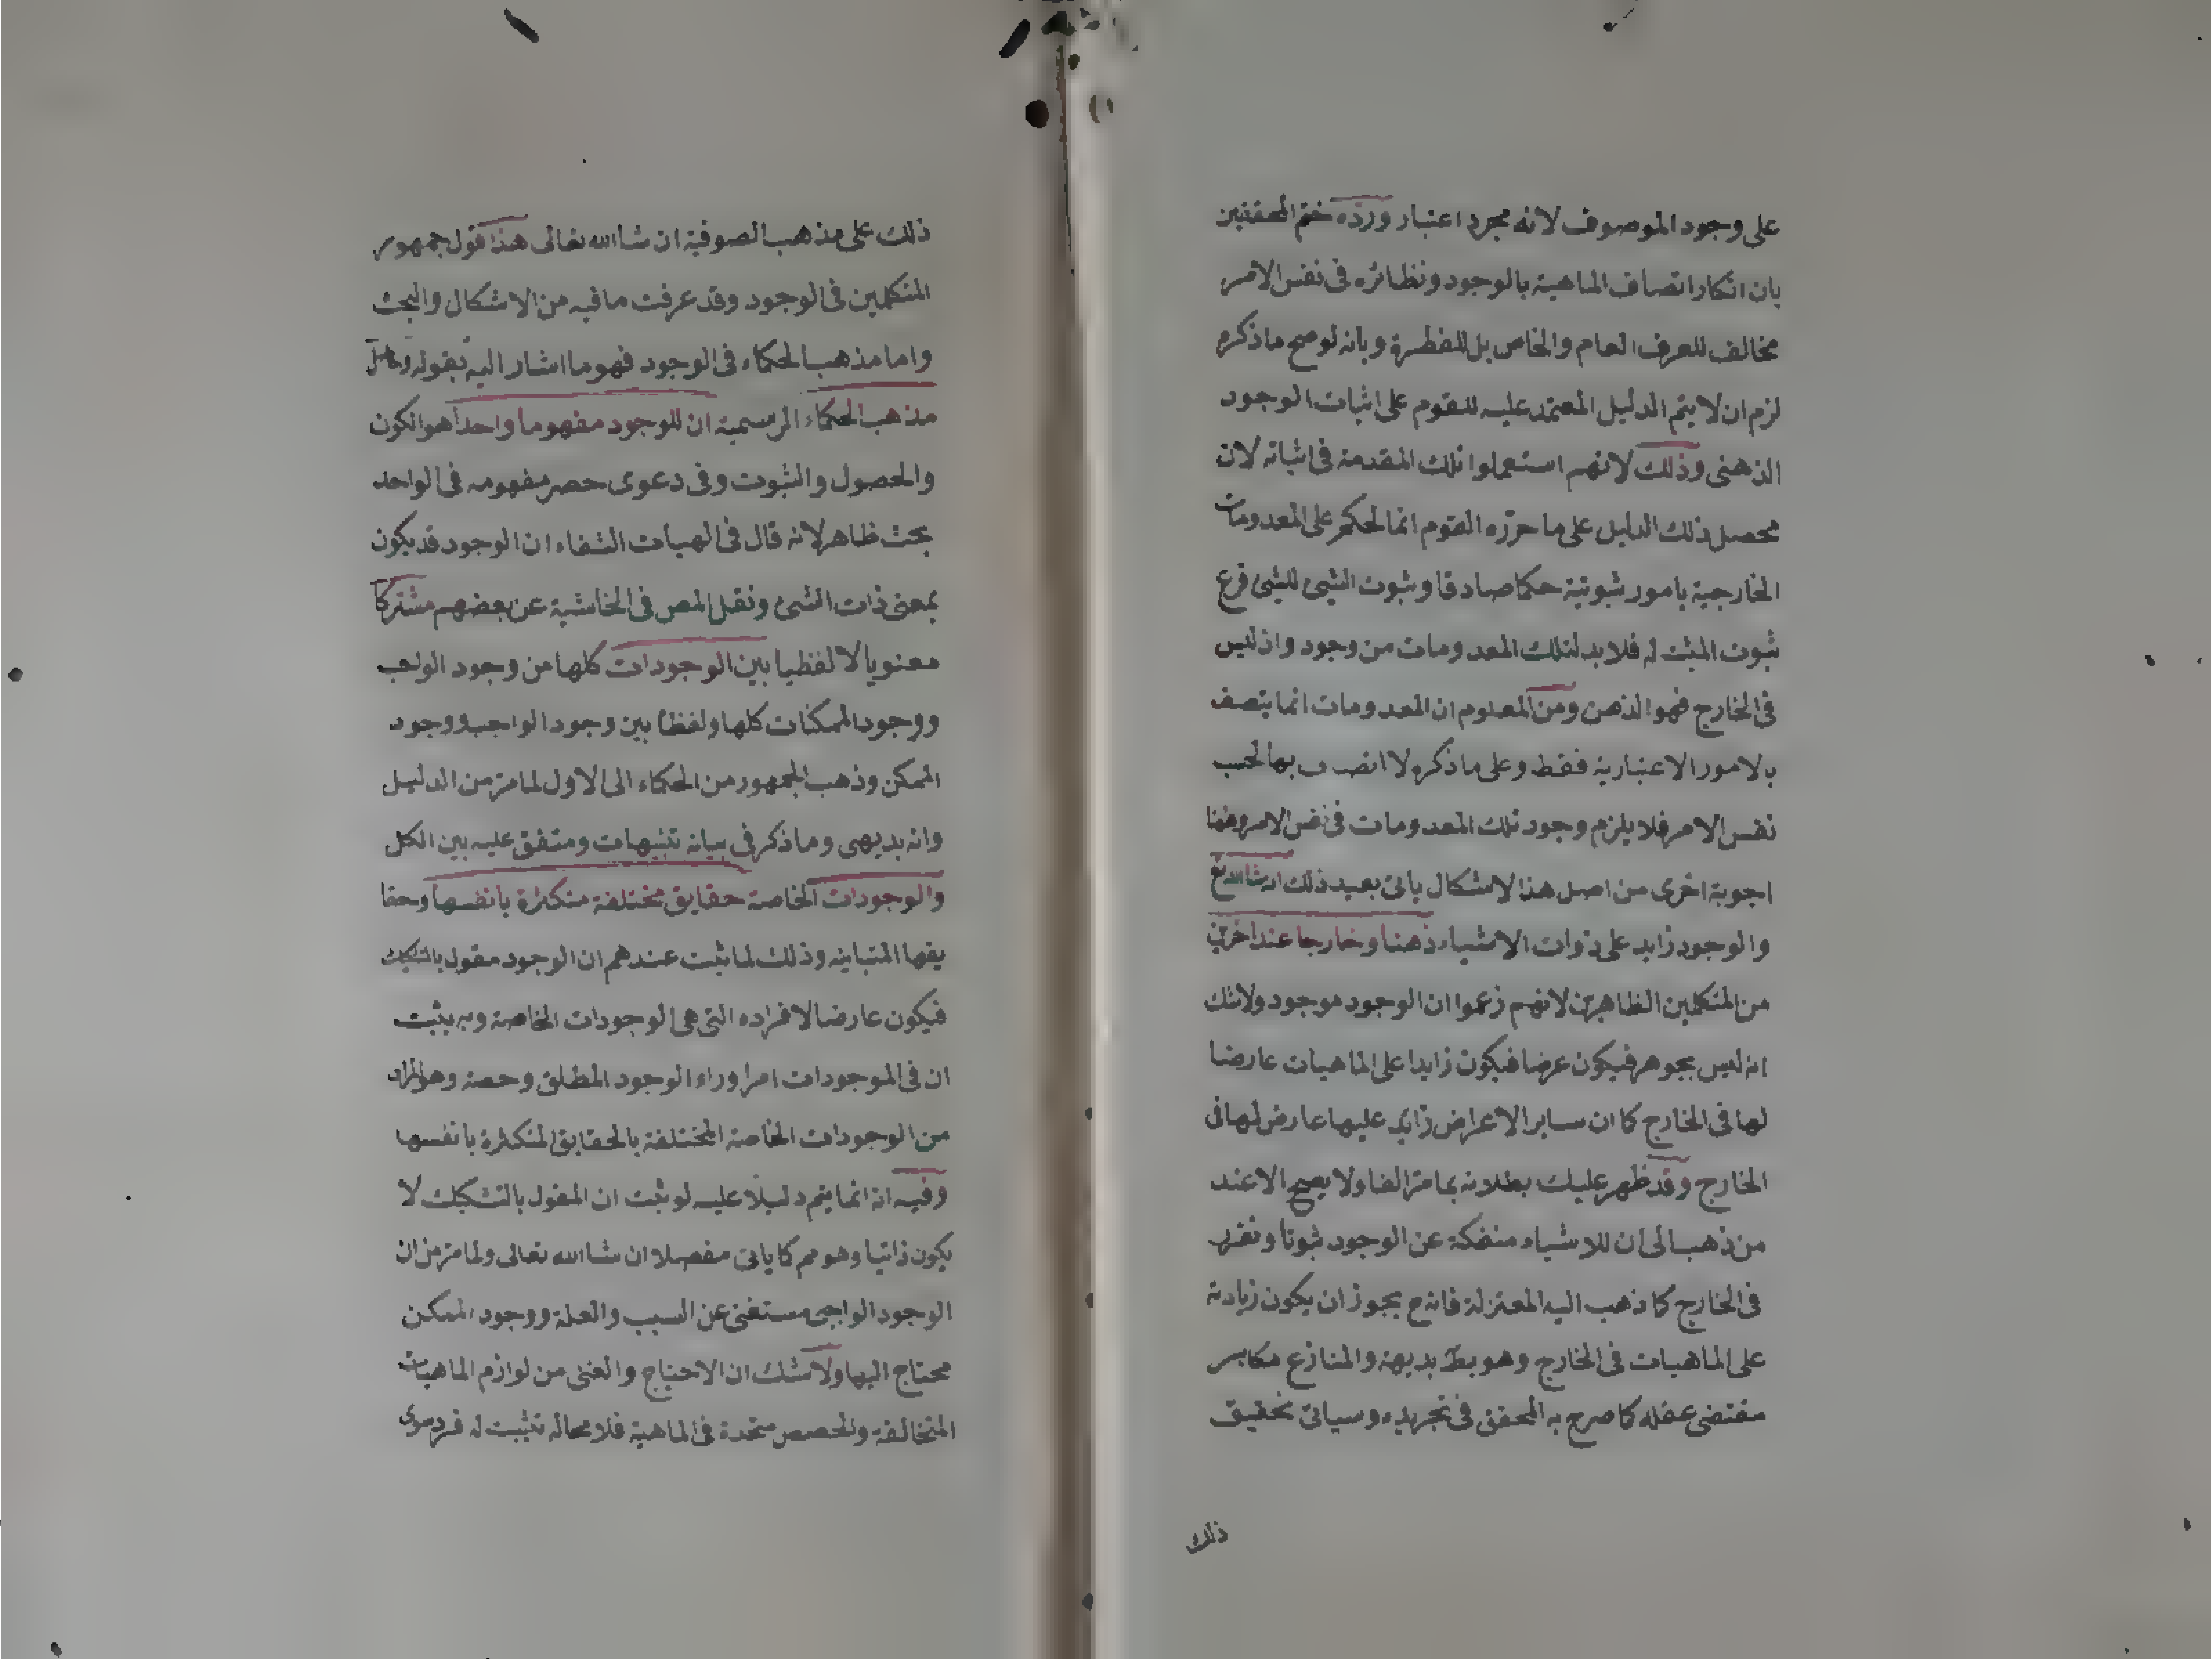 على وجود الموصوف لانه مجرد اعتبار ورده ختم المحققين
بان انكار اتصاف الماهية بالوجود ونظائره فى نفس الامر
مخالف للعرف العام والخاص بل للفطرة وبانه لو صح ما ذكره
لزم ان لا يتم الدليل المعتمد عليه للقوم على اثبات الوجود
الذهنى وذلك لانهم استعملوا تلك المقدمة فى اثباته لان
محصل ذلك الدليل على ما حرره القوم انما لحكم على المعدومات
الخارجية بامور ثبوتية حكما صادقا وثبوت الشئ للشئ فرع
ثبوت المثبت له فلا بد لتلك المعدومات من وجود واذ ليس
فى الخارج فهو الذهن ومن المعلوم ان المعدومات انما يتصف
بالامور الاعتبارية فقط وعلى ما ذكره لا اتصاف بها لحسب
نفس الامر فلا يلزم وجود تلك المعدومات فى نفس الامر وههنا
اجوبة اخرى من اصل هذا الاشكال ياتى بعيد ذلك ان شاالله تع
والوجود زايد على ذوات الاشياء ذهنا وخارجا عند اخرين
من المتكلمين الظاهرين لانهم زعموا ان الوجود موجود ولا شك
انه ليس بجوهر فيكون عرضا فيكون زايدا على الماهيات عارضا
لها فى الخارج كما ان ساير الاعراض زايد عليها عارض لها فى
الخارج وقد ظهر عليك بطلانه بما مر الفا ولا يصح الا عند
من ذهب الى ان للاشياء منفكة عن الوجود ثبوتا وتقرر
فى الخارج كما ذهب اليه المعتزلة فانه ح يجوز ان يكون زيادته
على الماهيات فى الخارج وهو بط بديهة والمنازع مكابر
مقتضى عقله كما صرح به المحقق فى تجريده وسياتى تحقيق
ذلك
ذلك على مذهب الصوفية ان شاالله تعالى هذا قول جمهور
المتكلمين فى الوجود وقد عرفت ما فيه من الاشكال والبحث
واما مذهب الحكماء فى الوجود فهو ما اشار اليه بقوله
مذهب الحكماء الرسمية ان للوجود مفهوما واحدا هو الكون
والحصول والثبوت وفى دعوى حصر مفهومه فى الواحد
بحث ظاهر لانه قال فى الهيات الشفاء ان الوجود قد يكون
بمعنى ذات الشئ ونقل المص فى الحاشية عن بعضهم مشتركا
معنويا لا لفظيا بين الوجودات كلها من وجود الواجب
ووجود الممكنات كلها ولفظا بين وجود الواجب ووجود
الممكن وذهب الجمهور من الحكماء الى الاول لما مر من الدليل
وانه بديهى وما ذكر فى بيانه تنبيهات ومتفق عليه بين الكل
والوجودات الخاصة حقايق مختلفة متكثرة بانفسها وحقا
يقها المتباينه وذلك لما ثبت عندهم ان الوجود مقول بالتشكيك
فيكون عارضا لافراده التى هى الوجودات الخاصة وبه يثبت
ان فى الموجودات امرا وراء الوجود المطلق وحصة وهو المراد
من الوجودات الخاصة المختلفة بالحقايق المتكثرة بانفسها
وفيه انه انما يتم دليلا عليه لو ثبت ان المقول بالتشكيك لا
يكون ذاتيا وهو مم كما ياتى مفصلا ان شاالله تعالى ولما مر من ان
الوجود الواجبى مستغنى عن السبب والعلة ووجود الممكن
محتاج اليها ولا شك ان الاحتياج والغنى من لوازم الماهيات
المتخالفة والحصص متحدة فى الماهية فلا محالة تثبت له فرد سوى